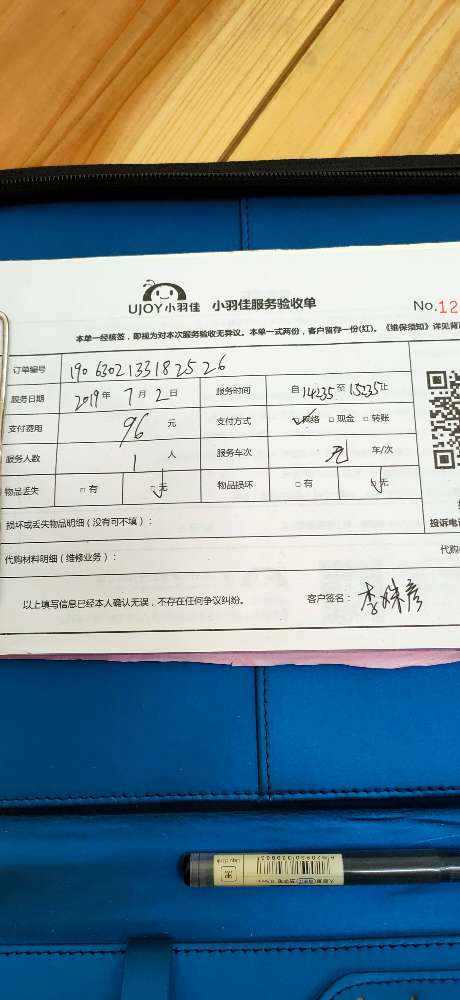 UJOY小羽佳 小羽佳服务验收单
No.12
本单一经核签，即视为对本次服务验收无异议。本单一式两份，客户留存一份(红)。《维保须知》详见背
订单编号 190 63021331825 26
服务日期 2019年 7月 2日 服务时间 自 14235 至 15235 止
支付费用 96 元 支付方式 ☑网络 □现金 □转账
服务人数 1 人 服务车次 无 车/次
物品丢失 □有 ☑无 物品损坏 □有 ☑无
投诉电
损坏或丢失物品明细（没有可不填）：
代购材料明细（维修业务）：
代购
以上填写信息已经本人确认无误，不存在任何争议纠纷。 客户签名：